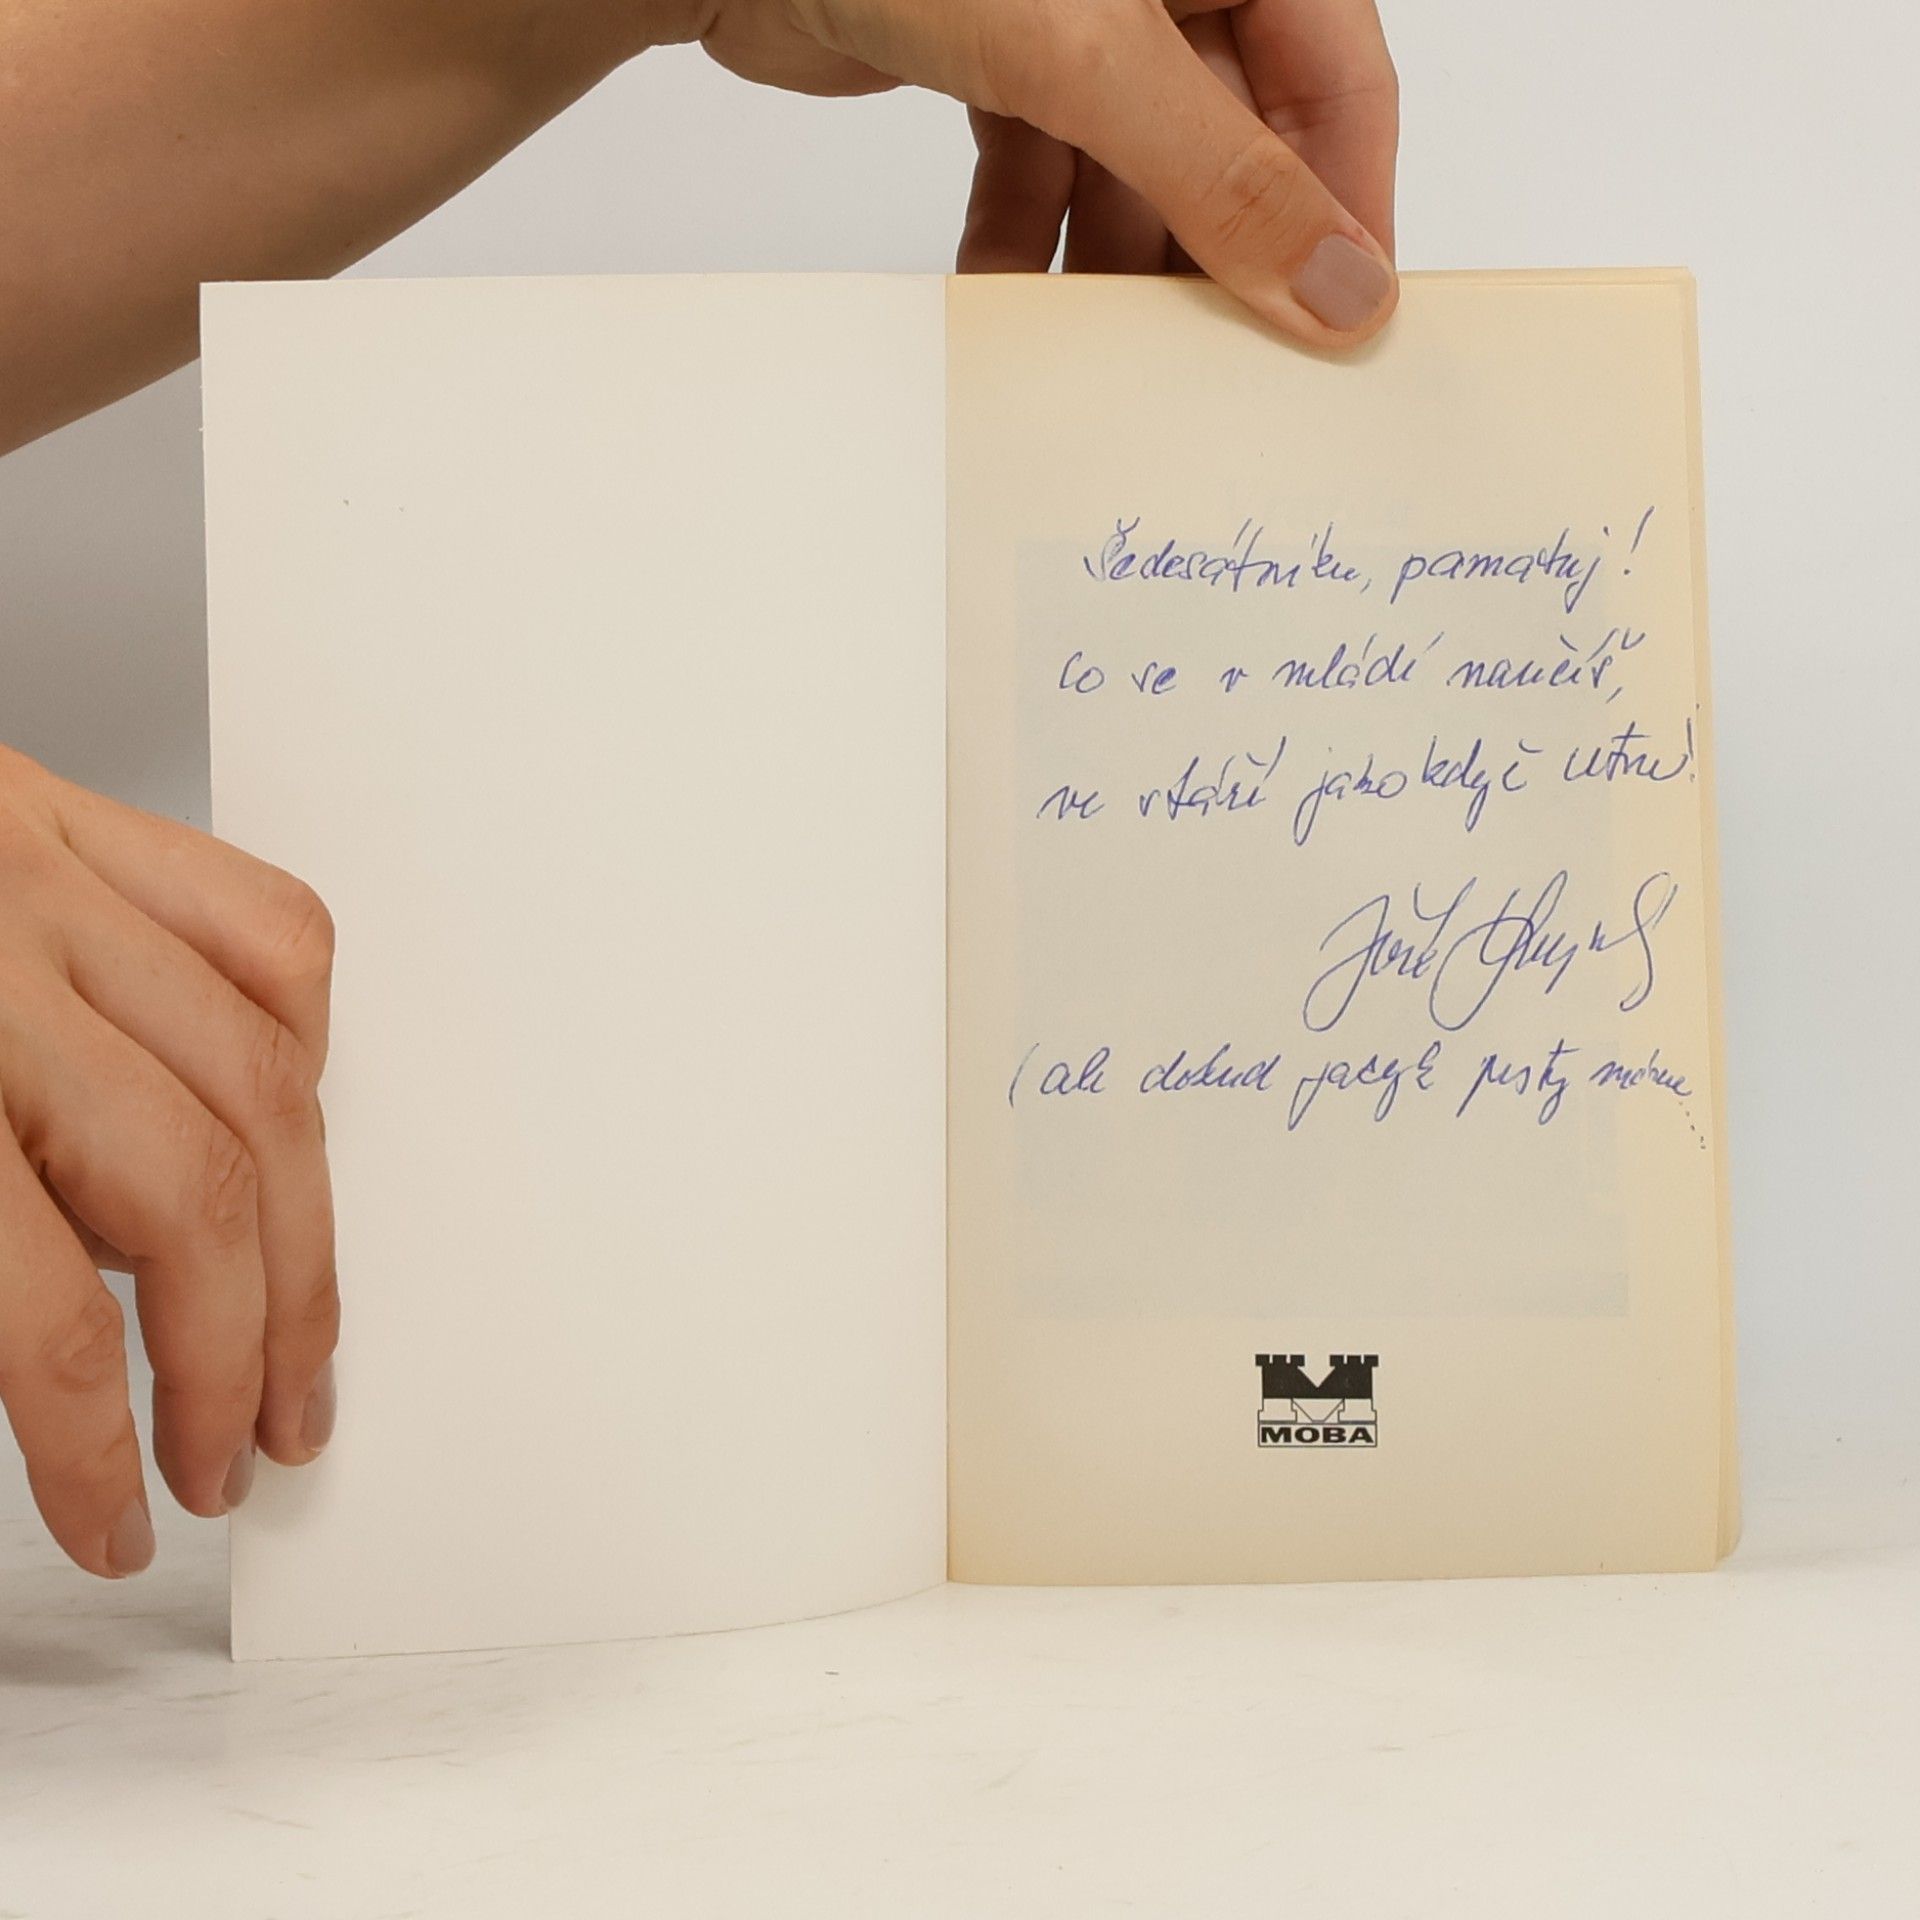 Šedesátníku, pamatuj!
co se v mládí naučíš,
ve stáří jako když utne!
(ale dokud jazyk prsty máme.....
MOBA